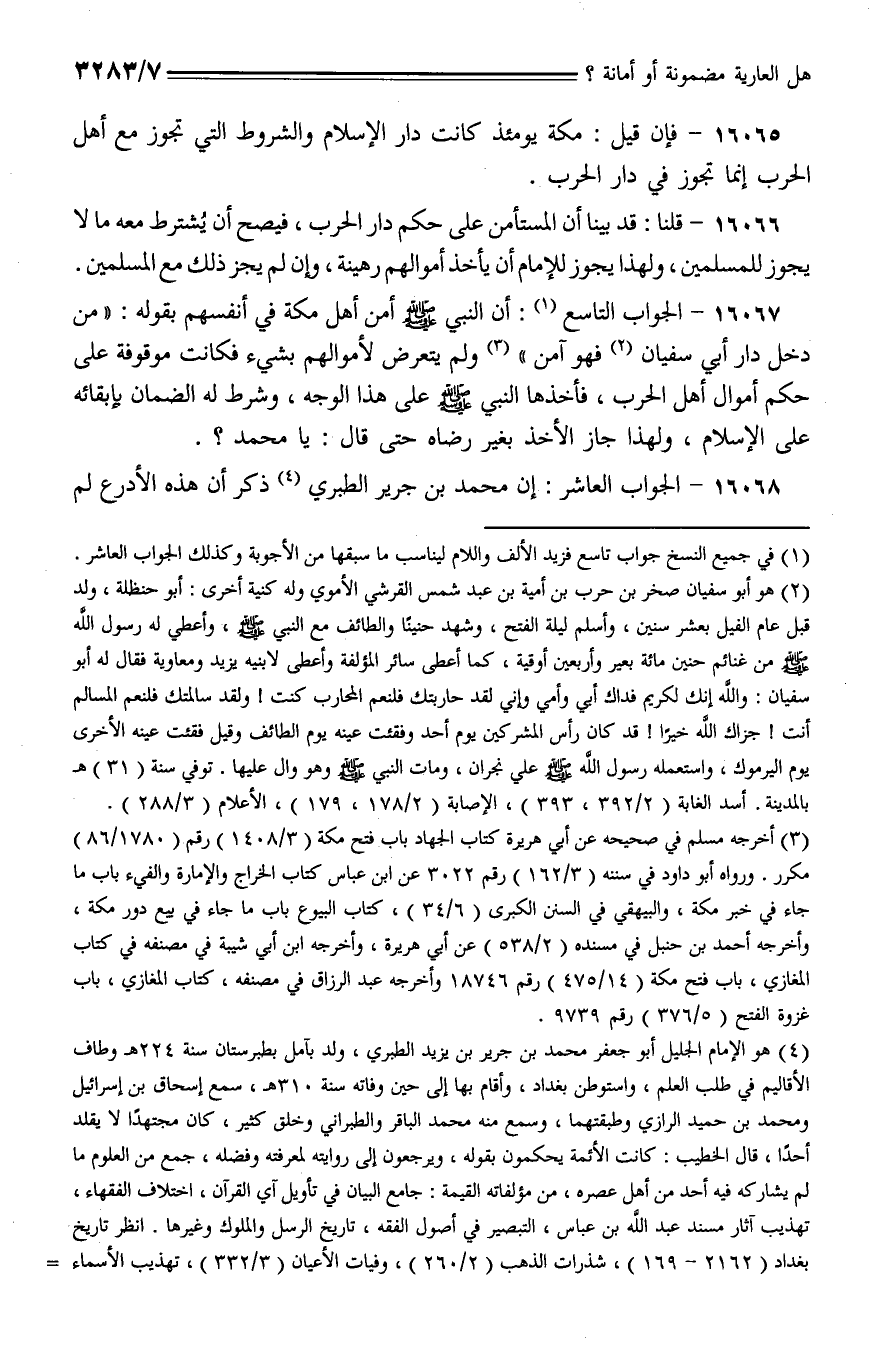 هل العارية مضمونة أو أمانة ؟ ٣٢٨٣/٧
١٦٠٦٥ – فإن قيل : مكة يومئذ كانت دار الإسلام والشروط التي تجوز مع أهل
الحرب إنما تجوز في دار الحرب .
١٦٠٦٦ – قلنا : قد بينا أن المستأمن على حكم دار الحرب ، فيصح أن يُشترط معه ما لا
يجوز للمسلمين ، ولهذا يجوز للإمام أن يأخذ أموالهم رهينة ، وإن لم يجز ذلك مع المسلمين .
١٦٠٦٧ – الجواب التاسع (١) : أن النبي ﷺ أمن أهل مكة في أنفسهم بقوله : « من
دخل دار أبي سفيان (٢) فهو آمن » (٣) ولم يتعرض لأموالهم بشيء فكانت موقوفة على
حكم أموال أهل الحرب ، فأخذها النبي ﷺ على هذا الوجه ، وشرط له الضمان بإبقائه
على الإسلام ، ولهذا جاز الأخذ بغير رضاه حتى قال : يا محمد ؟ .
١٦٠٦٨ – الجواب العاشر : إن محمد بن جرير الطبري (٤) ذكر أن هذه الأدرع لم
(١) في جميع النسخ جواب تاسع فزيد الألف واللام ليناسب ما سبقها من الأجوبة وكذلك الجواب العاشر .
(٢) هو أبو سفيان صخر بن حرب بن أمية بن عبد شمس القرشي الأموي وله كنية أخرى : أبو حنظلة ، ولد
قبل عام الفيل بعشر سنين ، وأسلم ليلة الفتح ، وشهد حنينًا والطائف مع النبي ﷺ ، وأعطي له رسول اللَّه
ﷺ من غنائم حنين مائة بعير وأربعين أوقية ، كما أعطى سائر المؤلفة وأعطى لابنيه يزيد ومعاوية فقال له أبو
سفيان : واللَّه إنك لكريم فداك أبي وأمي وإني لقد حاربتك فلنعم المحارب كنت ! ولقد سالمتك فلنعم المسالم
أنت ! جزاك اللَّه خيرًا ! قد كان رأس المشركين يوم أحد وفقئت عينه يوم الطائف وقيل فقئت عينه الأخرى
يوم اليرموك ، واستعمله رسول اللَّه ﷺ علي نجران ، ومات النبي ﷺ وهو وال عليها . توفي سنة ( ٣١ ) هـ
بالمدينة . أسد الغابة ( ٣٩٢/٢ ، ٣٩٣ ) ، الإصابة ( ١٧٨/٢ ، ١٧٩ ) ، الأعلام ( ٢٨٨/٣ ) .
(٣) أخرجه مسلم في صحيحه عن أبي هريرة كتاب الجهاد باب فتح مكة ( ١٤٠٨/٣ ) رقم ( ٨٦/١٧٨٠ )
مكرر . ورواه أبو داود في سننه ( ١٦٢/٣ ) رقم ٣٠٢٢ عن ابن عباس كتاب الخراج والإمارة والفيء باب ما
جاء في خبر مكة ، والبيهقي في السنن الكبرى ( ٣٤/٦ ) ، كتاب البيوع باب ما جاء في بيع دور مكة ،
وأخرجه أحمد بن حنبل في مسنده ( ٥٣٨/٢ ) عن أبي هريرة ، وأخرجه ابن أبي شيبة في مصنفه في كتاب
المغازي ، باب فتح مكة ( ٤٧٥/١٤ ) رقم ١٨٧٤٦ وأخرجه عبد الرزاق في مصنفه ، كتاب المغازي ، باب
غزوة الفتح ( ٣٧٦/٥ ) رقم ٩٧٣٩ .
(٤) هو الإمام الجليل أبو جعفر محمد بن جرير بن يزيد الطبري ، ولد بآمل بطبرستان سنة ٢٢٤هـ وطاف
الأقاليم في طلب العلم ، واستوطن بغداد ، وأقام بها إلى حين وفاته سنة ٣١٠هـ ، سمع إسحاق بن إسرائيل
ومحمد بن حميد الرازي وطبقتهما ، وسمع منه محمد الباقر والطبراني وخلق كثير ، كان مجتهدًا لا يقلد
أحدًا ، قال الخطيب : كانت الأئمة يحكمون بقوله ، ويرجعون إلى روايته لمعرفته وفضله ، جمع من العلوم ما
لم يشاركه فيه أحد من أهل عصره ، من مؤلفاته القيمة : جامع البيان في تأويل آي القرآن ، اختلاف الفقهاء ،
تهذيب آثار مسند عبد اللَّه بن عباس ، التبصير في أصول الفقه ، تاريخ الرسل والملوك وغيرها . انظر تاريخ
بغداد ( ٢١٦٢ – ١٦٩ ) ، شذرات الذهب ( ٢٦٠/٢ ) ، وفيات الأعيان ( ٣٣٢/٣ ) ، تهذيب الأسماء =